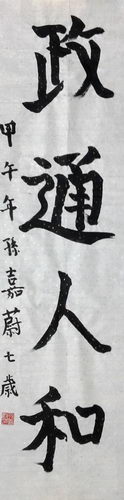 政通人和
甲午年孙嘉蔚七歲